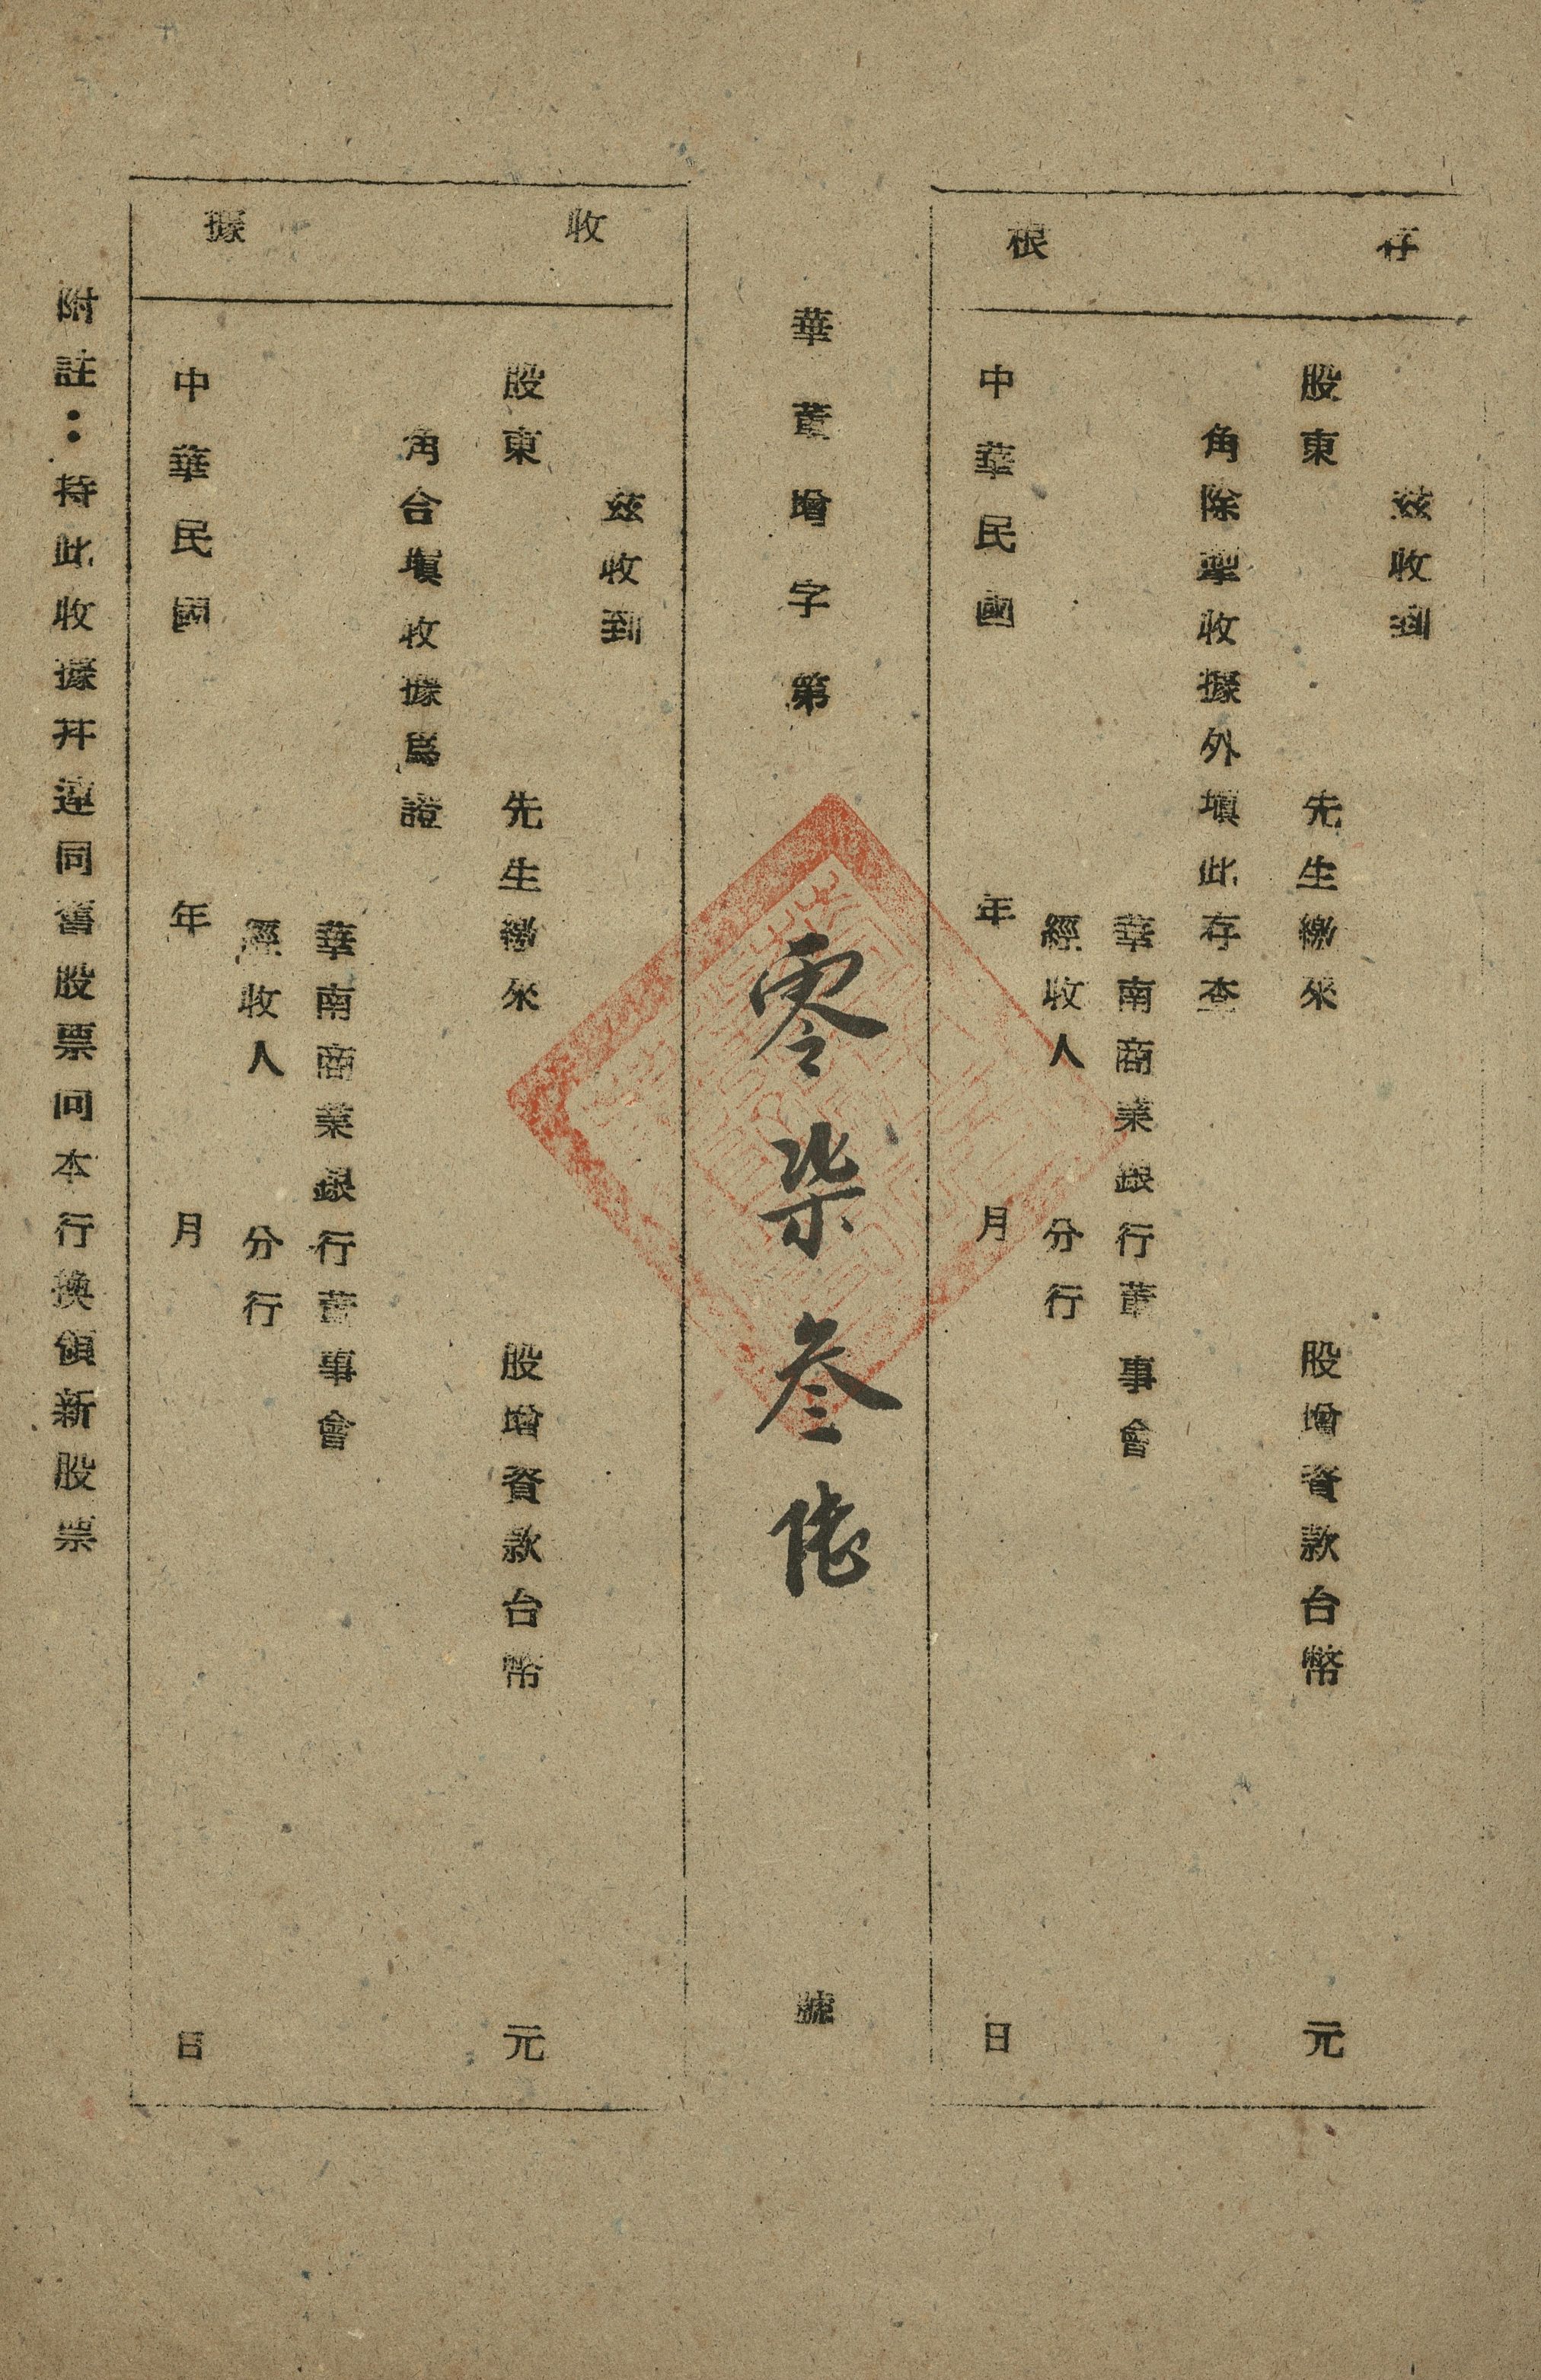 存根
茲收到
股東 先生繳來 股增資款台幣 元
角除掣收據外塡此存查
華南商業銀行董事會
經收人 分行
中華民國 年 月 日
華董增字第 零柒叁陸 號
收據
茲收到
股東 先生繳來 股增資款台幣 元
角合塡收據爲證
華南商業銀行董事會
經收人 分行
中華民國 年 月 日
附註：持此收據幷連同舊股票向本行換領新股票